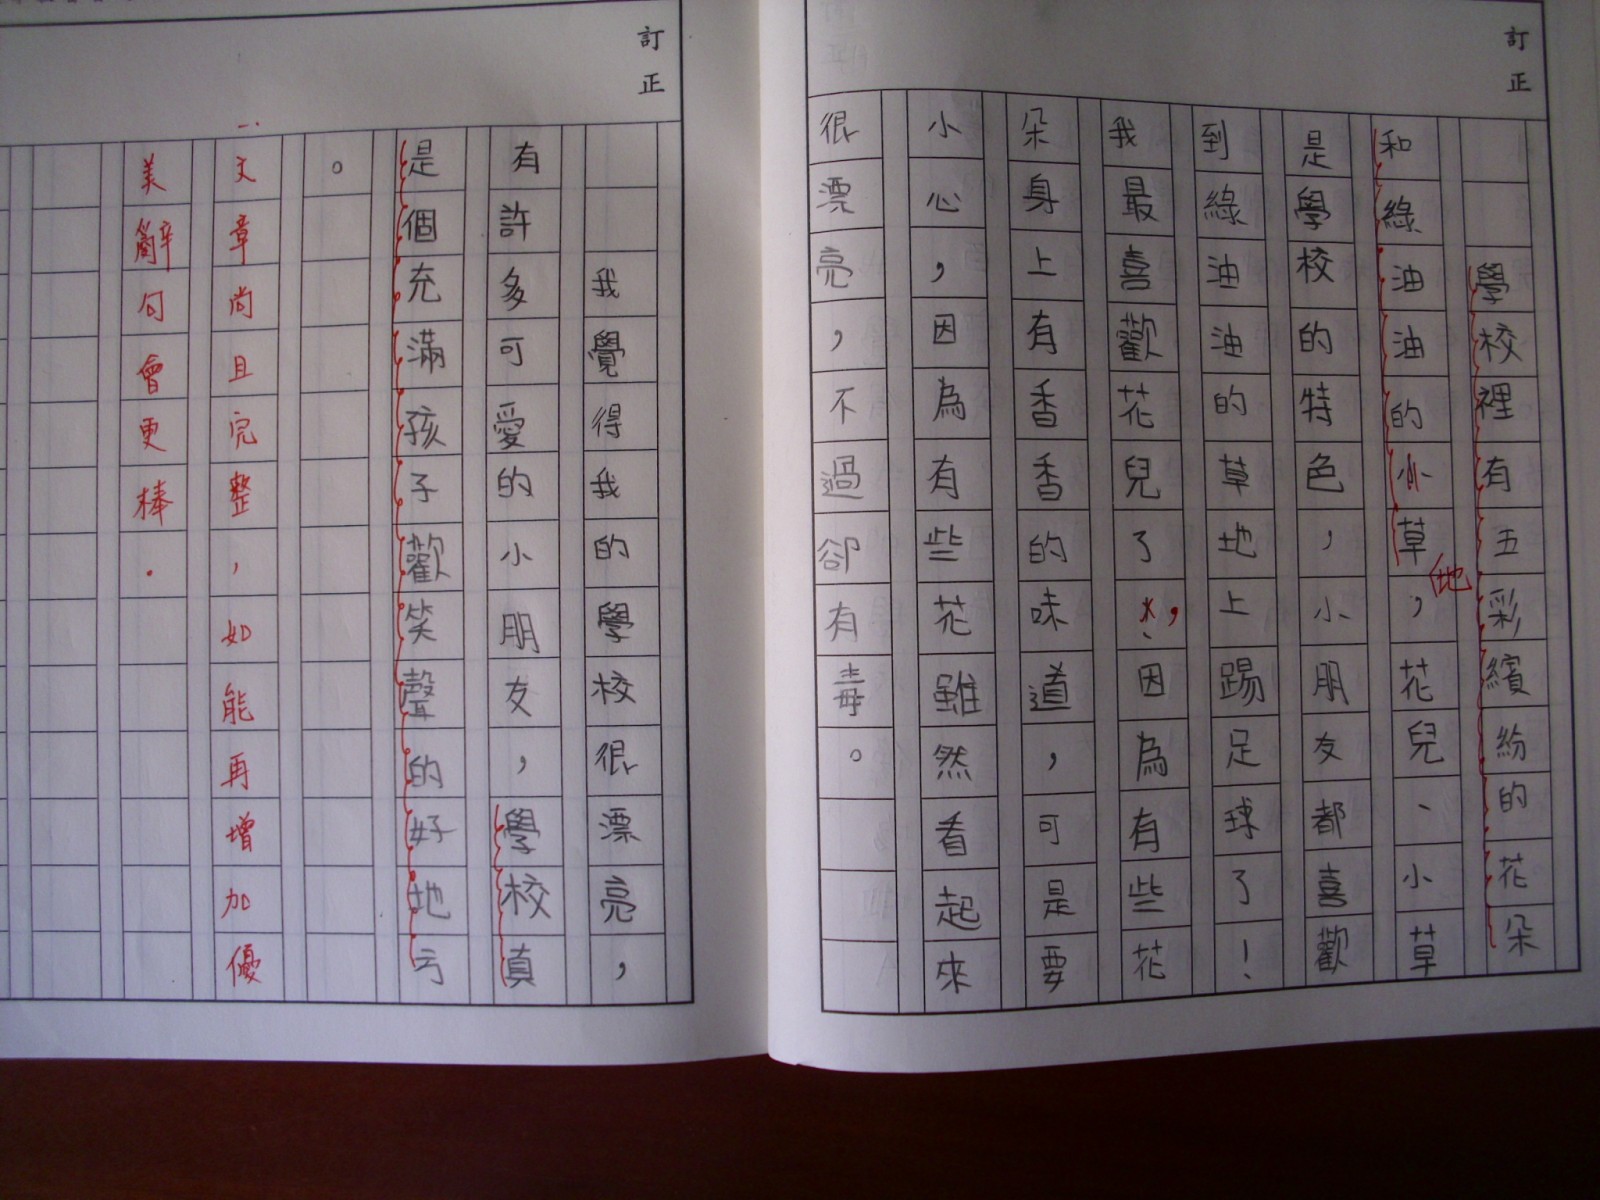 訂正
學校裡有五彩繽紛的花朵
和綠油油的小草地，花兒、小草
是學校的特色，小朋友都喜歡
到綠油油的草地上踢足球了！
我最喜歡花兒了，因為有些花
朵身上有香香的味道，可是要
小心，因為有些花雖然看起來
很漂亮，不過卻有毒。
訂正
我覺得我的學校很漂亮，
有許多可愛的小朋友，學校真
是個充滿孩子歡笑聲的好地方
。
文章尚且完整，如能再增加優
美辭句會更棒．